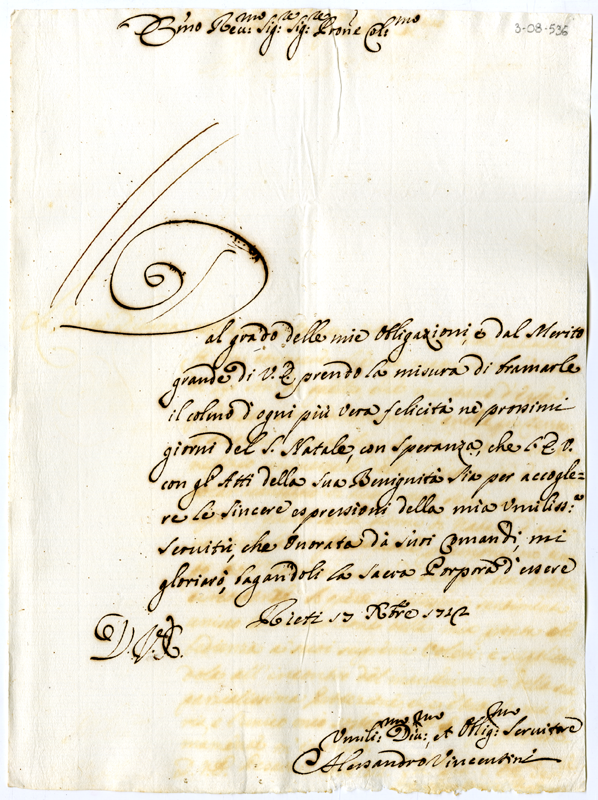 Emo Reu:mo Sig:re Sig:re Prone Col:mo
3-08-536
Dal grado delle mie Obligazioni, e dal Merito
grande di V. E. prendo la misura di bramarle
il colmo d'ogni più vera felicità ne prossimi
giorni del S. Natale, con speranza, che l'E. V.
con gl'Atti della sua Benignità sia per accoglie=
re le sincere espressioni della mia Vmiliss:a
seruitù, che Onorata dà suoi Comandi, mi
gloriarò, bagandoli la sacra Porpora d'essere
Rieti 17 Xbre 1712
D. V. E.
Vmili:mo Diu:mo, et Oblig:mo Seruitore
Alessandro Vincentini